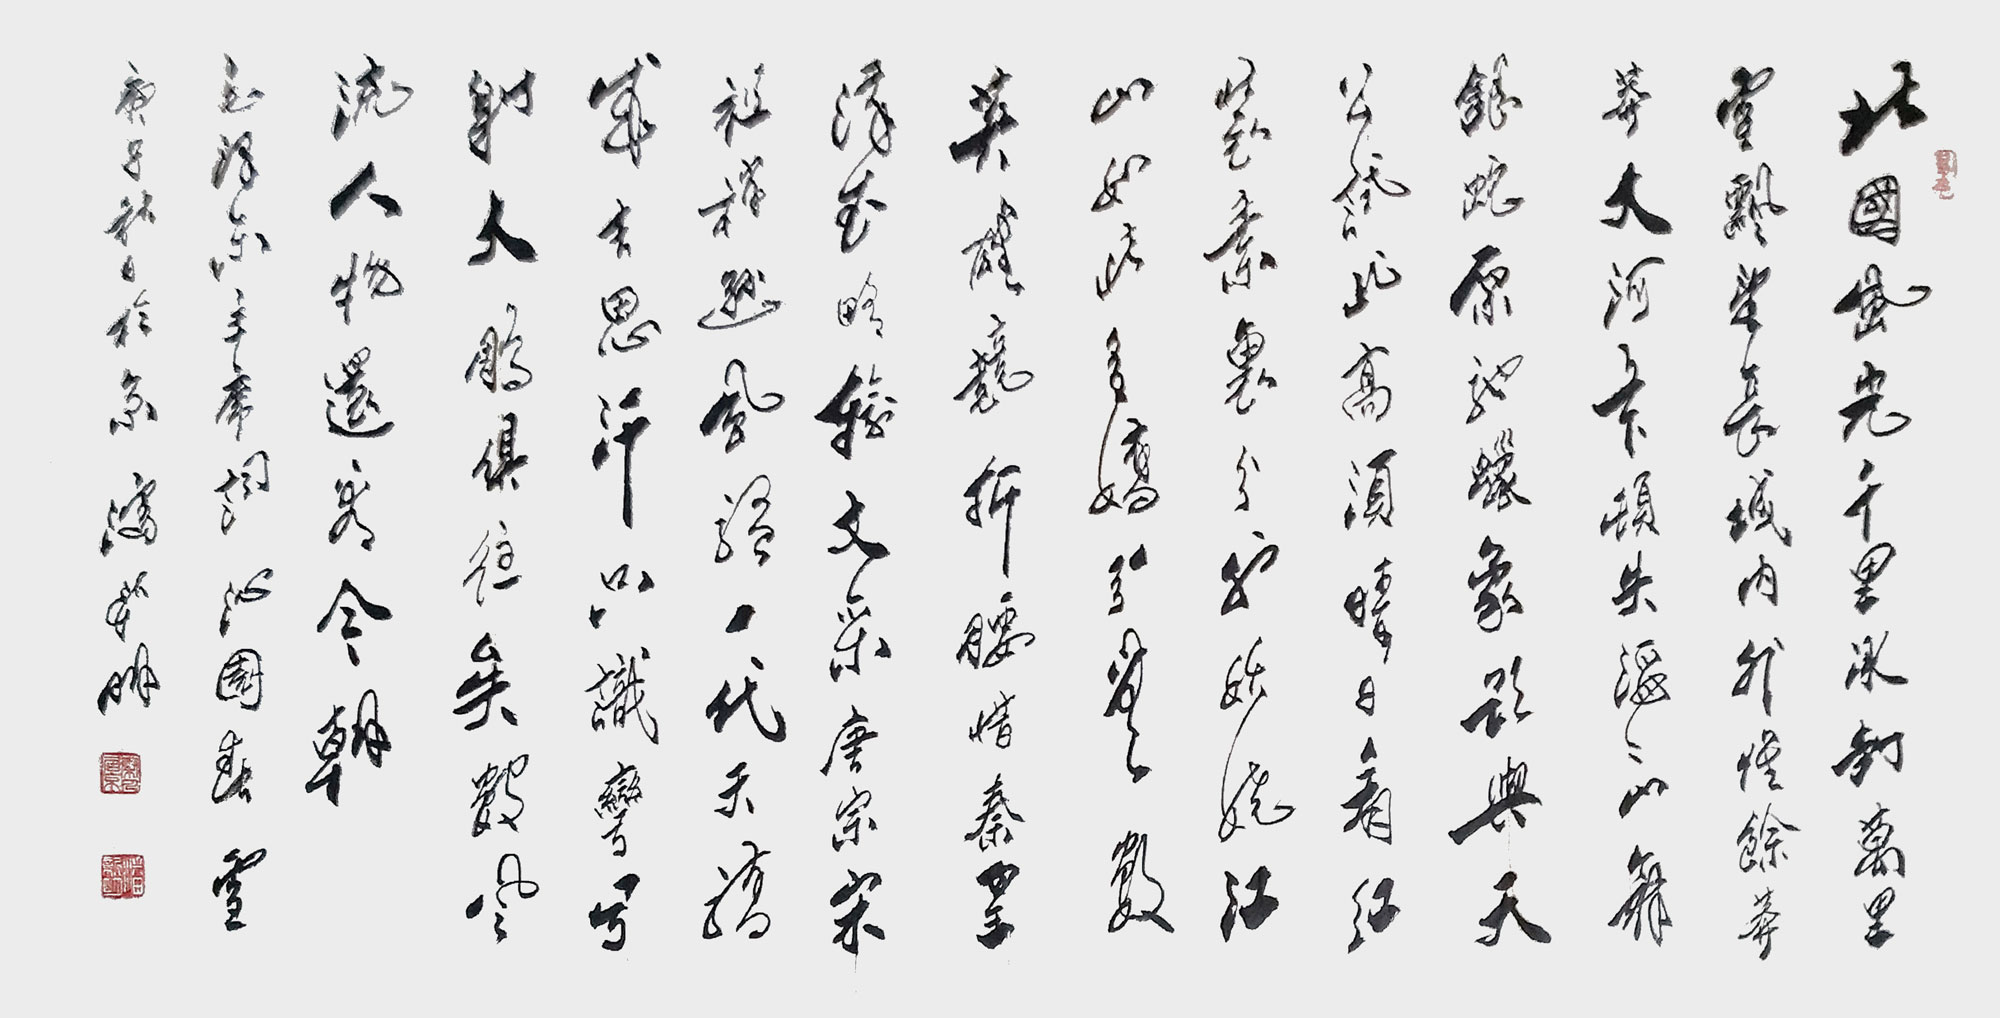 北國風光千里冰封萬里
雪飄望長城內外惟餘莽
莽大河上下頓失滔滔山舞
銀蛇原馳蠟象欲與天
公試比高須晴日看紅
裝素裹分外妖嬈江
山如此多嬌引無數
英雄競折腰惜秦皇
漢武略輸文采唐宗宋
祖稍遜風騷一代天驕
成吉思汗只識彎弓
射大鵰俱往矣數風
流人物還看今朝
毛澤東主席詞沁園春雪
庚子秋日於京